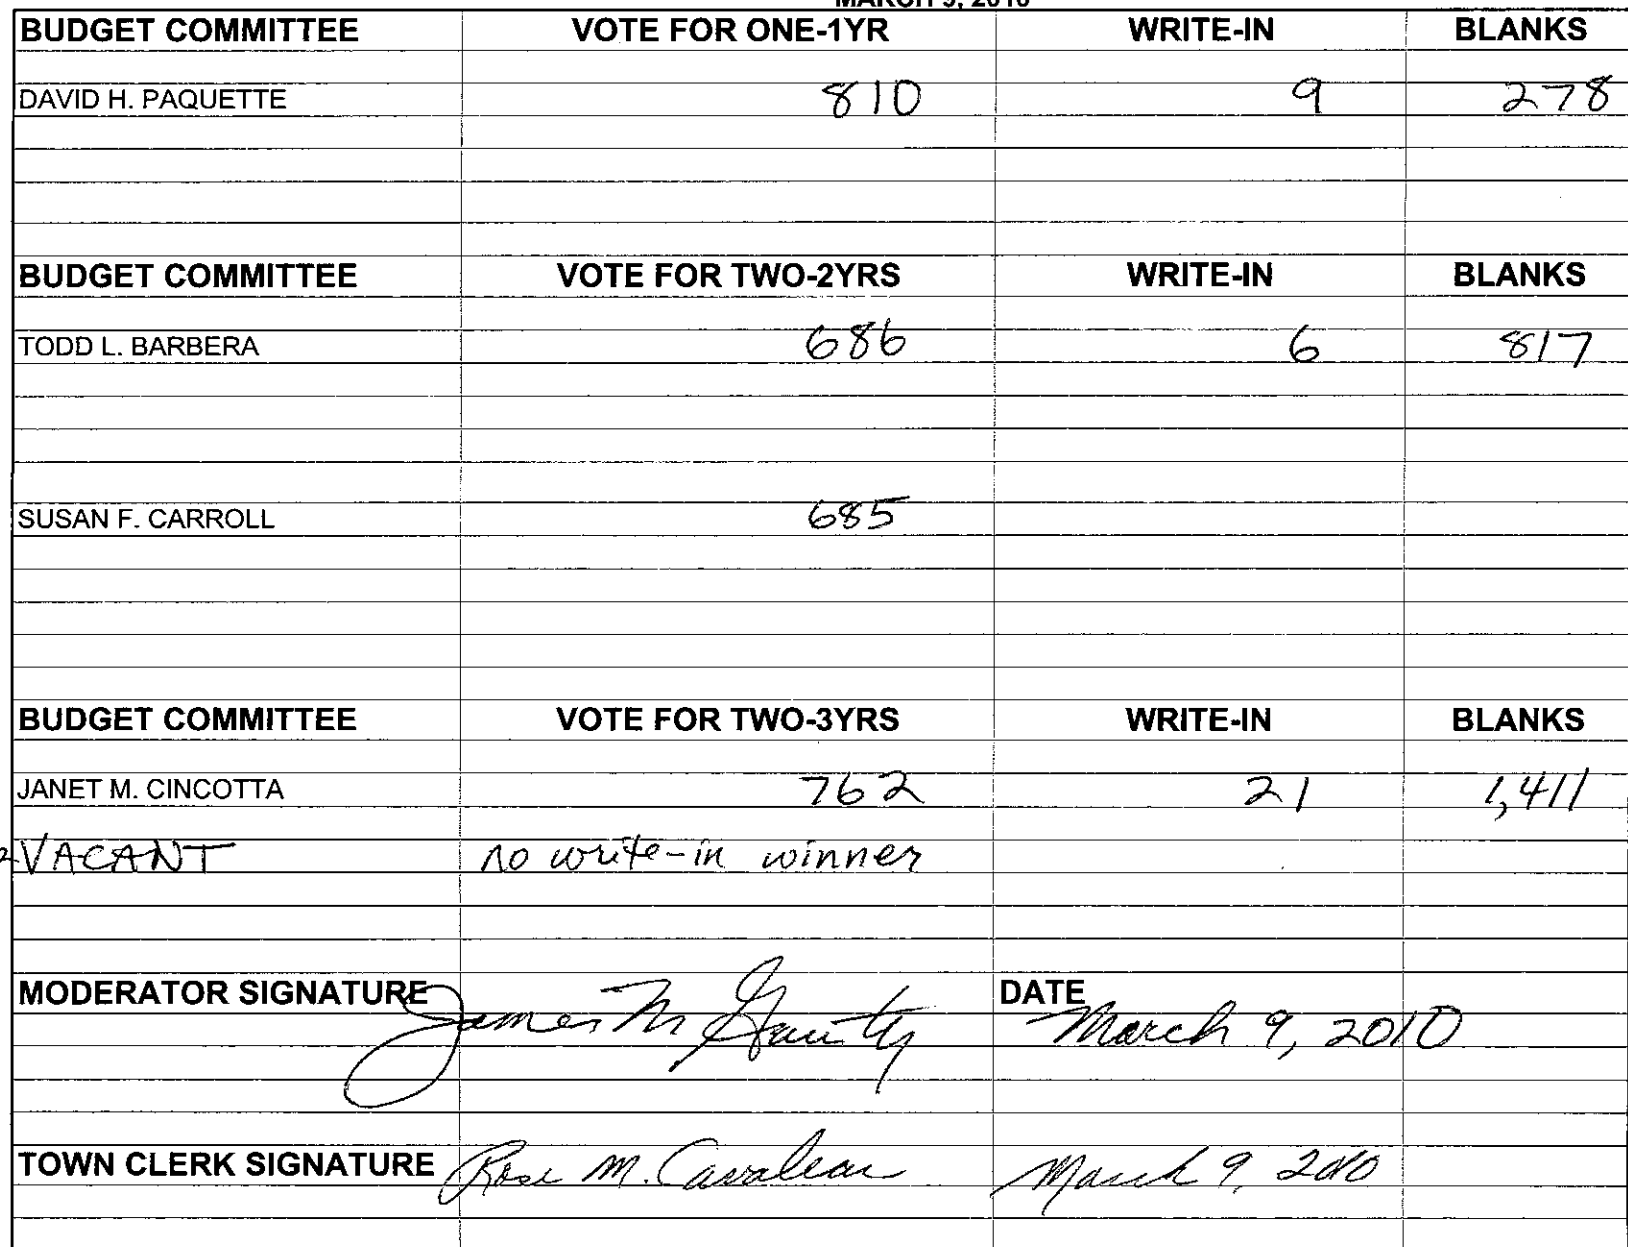 MARCH 9, 2010
BUDGET COMMITTEE VOTE FOR ONE-1YR WRITE-IN BLANKS
DAVID H. PAQUETTE 810 9 278
BUDGET COMMITTEE VOTE FOR TWO-2YRS WRITE-IN BLANKS
TODD L. BARBERA 686 6 817
SUSAN F. CARROLL 685
BUDGET COMMITTEE VOTE FOR TWO-3YRS WRITE-IN BLANKS
JANET M. CINCOTTA 762 21 1,411
VACANT no write-in winner
MODERATOR SIGNATURE James M DATE March 9, 2010
TOWN CLERK SIGNATURE Rose M. March 9, 2010